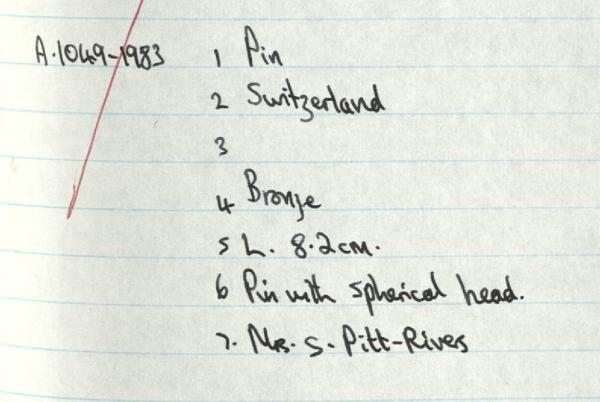 A.1049-1983 1 Pin
2 Switzerland
3
4 Bronze
5 L. 8.2cm.
6 Pin with spherical head.
7. Mrs. S. Pitt-Rivers